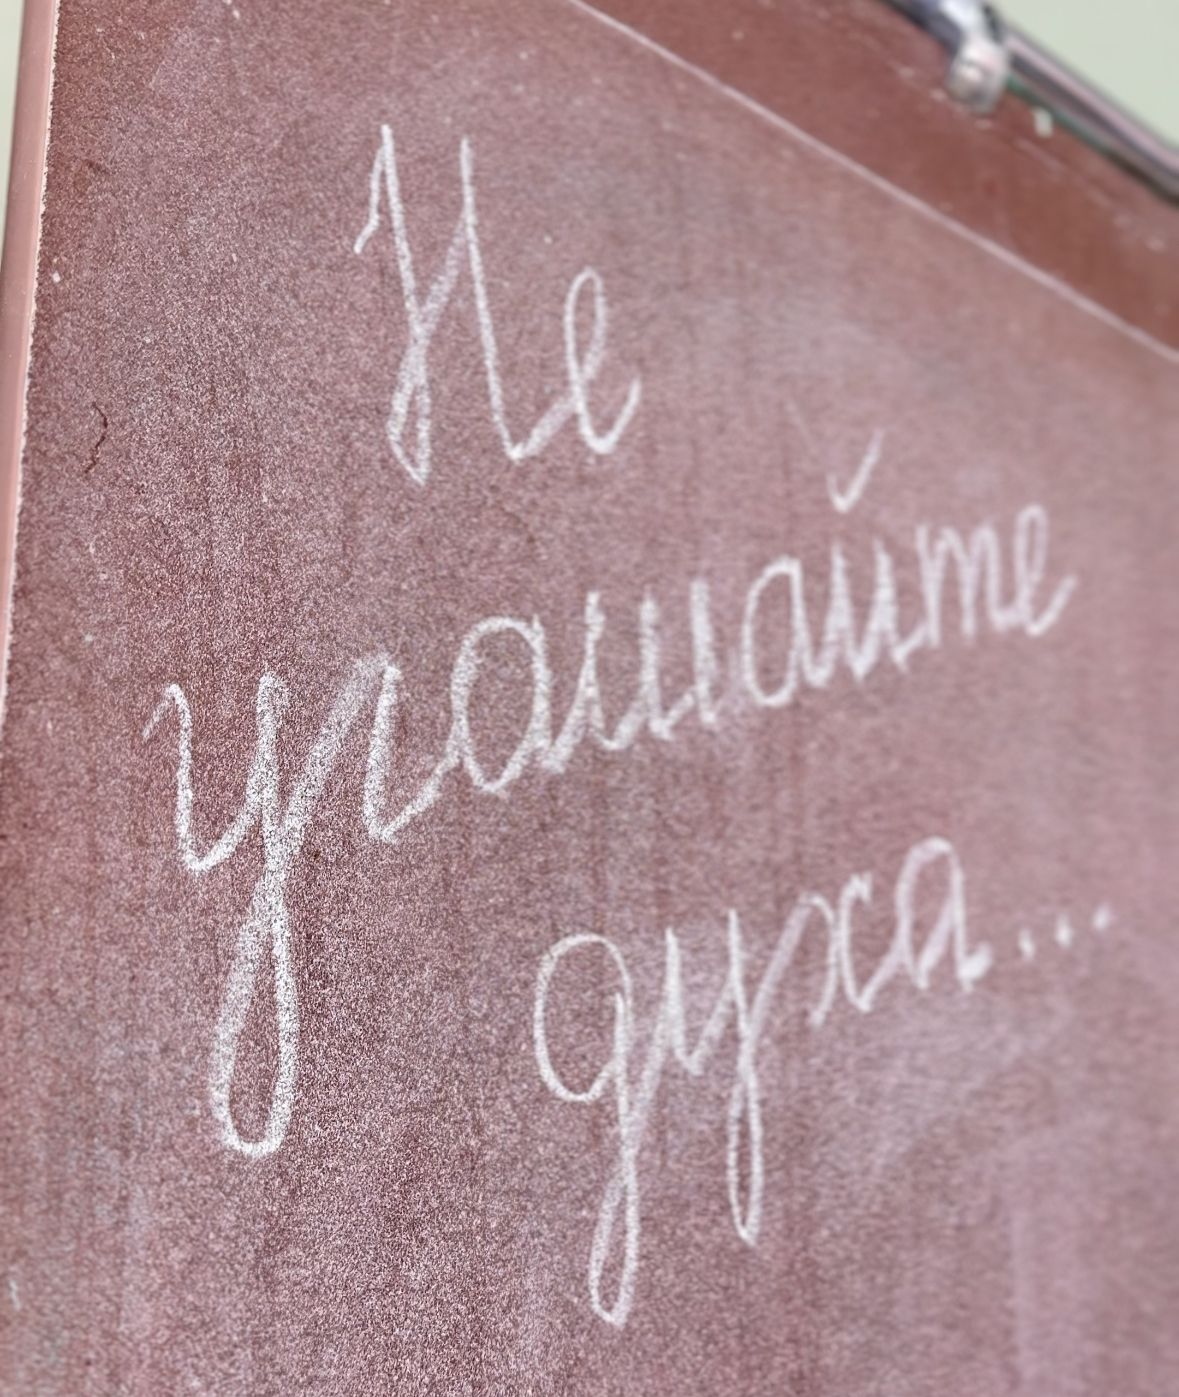 Не
угашайте
духа...